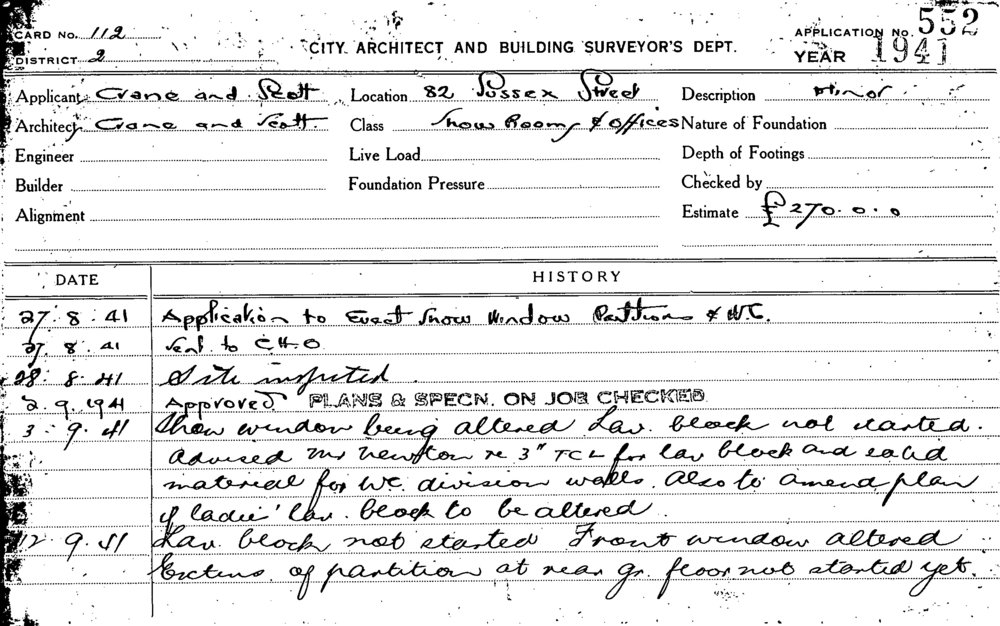 CARD No. 112
DISTRICT 2
CITY ARCHITECT AND BUILDING SURVEYOR'S DEPT.
APPLICATION No. 552
YEAR 1941
Applicant Crane and Scott
Location 82 Sussex Street
Description Minor
Architect Crane and Scott.
Class Show Rooms & Offices
Nature of Foundation
Engineer
Live Load
Depth of Footings
Builder
Foundation Pressure
Checked by
Alignment
Estimate £270.0.0
DATE
HISTORY
27.8.41 Application to Erect Show Window Partitions & W.C.
27.8.41 Sent to C.H.O
28.8.41 Site inspected.
2.9.1941 Approved PLANS & SPECN. ON JOB CHECKED
3.9.41 Show window being altered Lav. block not started.
Advised Mr Newton re 3" TCL for lav block and
material for WC. division walls. Also to amend plan
if ladies' lav. block to be altered.
12.9.41 Lav. block not started Front window altered
of partition at rear gr. floor not started yet.